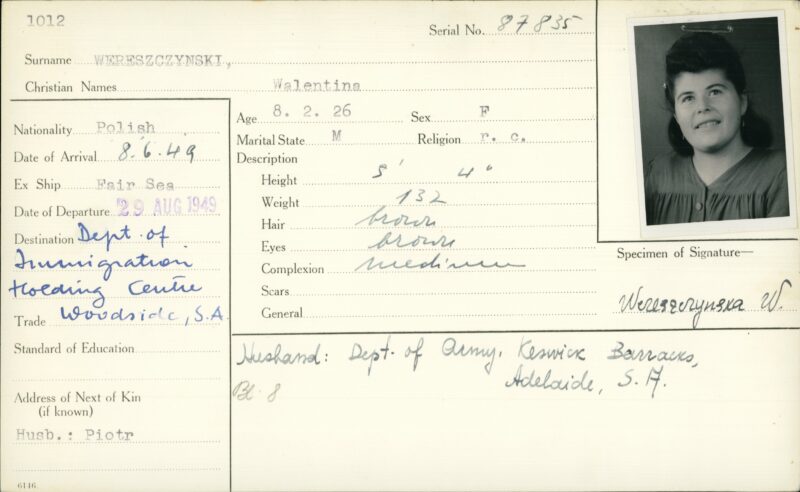 1012
Serial No. 87835
Surname WERESZCZYNSKI,
Christian Names Walentina
Nationality Polish
Date of Arrival 8.6.49
Ex Ship Fair Sea
Date of Departure 29 AUG 1949
Destination Dept. of
Immigration
Holding Centre
Woodside, S.A.
Trade
Standard of Education
Address of Next of Kin
(if known)
Husb.: Piotr
6146
Age 8. 2. 26 Sex F
Marital State M Religion r. c.
Description
Height 5' 4"
Weight 132
Hair brown
Eyes brown
Complexion medium
Scars
General
Specimen of Signature—
Wereszczynska W.
Husband: Dept. of Army, Keswick Barracks,
Adelaide, S.A.
Bl. 8